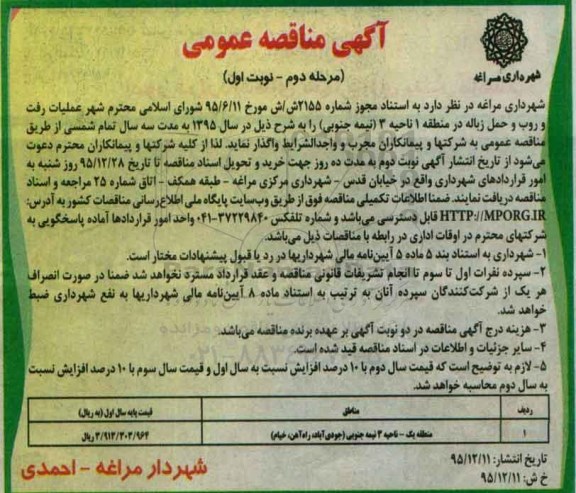 آگهی مناقصه عمومی
(مرحله دوم - نوبت اول)
شهرداری مراغه
شهرداری مراغه در نظر دارد به استناد مجوز شماره ۲۱۵۵/ش/ش مورخ ۹۵/۶/۱۱ شورای اسلامی محترم شهر عملیات رفت
و روب و حمل زباله در منطقه ۱ ناحیه ۳ (نیمه جنوبی) را به شرح ذیل در سال ۱۳۹۵ به مدت سه سال تمام شمسی از طریق
مناقصه عمومی به شرکتها و پیمانکاران مجرب و واجدالشرایط واگذار نماید. لذا از کلیه شرکتها و پیمانکاران محترم دعوت
می‌شود از تاریخ انتشار آگهی نوبت دوم به مدت ده روز جهت خرید و تحویل اسناد مناقصه تا تاریخ ۹۵/۱۲/۲۸ روز شنبه به
امور قراردادهای شهرداری واقع در خیابان قدس - شهرداری مرکزی مراغه - طبقه همکف - اتاق شماره ۲۵ مراجعه و اسناد
مناقصه دریافت نمایند. ضمنا اطلاعات تکمیلی مناقصه فوق از طریق وب‌سایت پایگاه ملی اطلاع‌رسانی مناقصات کشور به آدرس:
HTTP://MPORG.IR قابل دسترسی می‌باشد و شماره تلفکس ۳۷۲۲۹۸۴۰-۰۴۱ واحد امور قراردادها آماده پاسخگویی به
شرکتهای محترم در اوقات اداری در رابطه با مناقصات ذیل می‌باشد.
۱- شهرداری به استناد بند ۵ ماده ۵ آیین‌نامه مالی شهرداریها در رد یا قبول پیشنهادات مختار است.
۲- سپرده نفرات اول تا سوم تا انجام تشریفات قانونی مناقصه و عقد قرارداد مسترد نخواهد شد ضمنا در صورت انصراف
هر یک از شرکت‌کنندگان سپرده آنان به ترتیب به استناد ماده ۸ آیین‌نامه مالی شهرداریها به نفع شهرداری ضبط
خواهد شد.
۳- هزینه درج آگهی مناقصه در دو نوبت آگهی بر عهده برنده مناقصه می‌باشد.
۴- سایر جزئیات و اطلاعات در اسناد مناقصه قید شده است.
۵- لازم به توضیح است که قیمت سال دوم با ۱۰ درصد افزایش نسبت به سال اول و قیمت سال سوم با ۱۰ درصد افزایش نسبت
به سال دوم محاسبه خواهد شد.
ردیف مناطق قیمت پایه سال اول (به ریال)
۱ منطقه یک - ناحیه ۳ نیمه جنوبی (جودی‌آباد، راه‌آهن، خیام) ۳/۹۱۲/۳۰۳/۹۶۴ ریال
تاریخ انتشار: ۹۵/۱۲/۱۱
خ ش: ۹۵/۱۲/۱۱
شهردار مراغه - احمدی